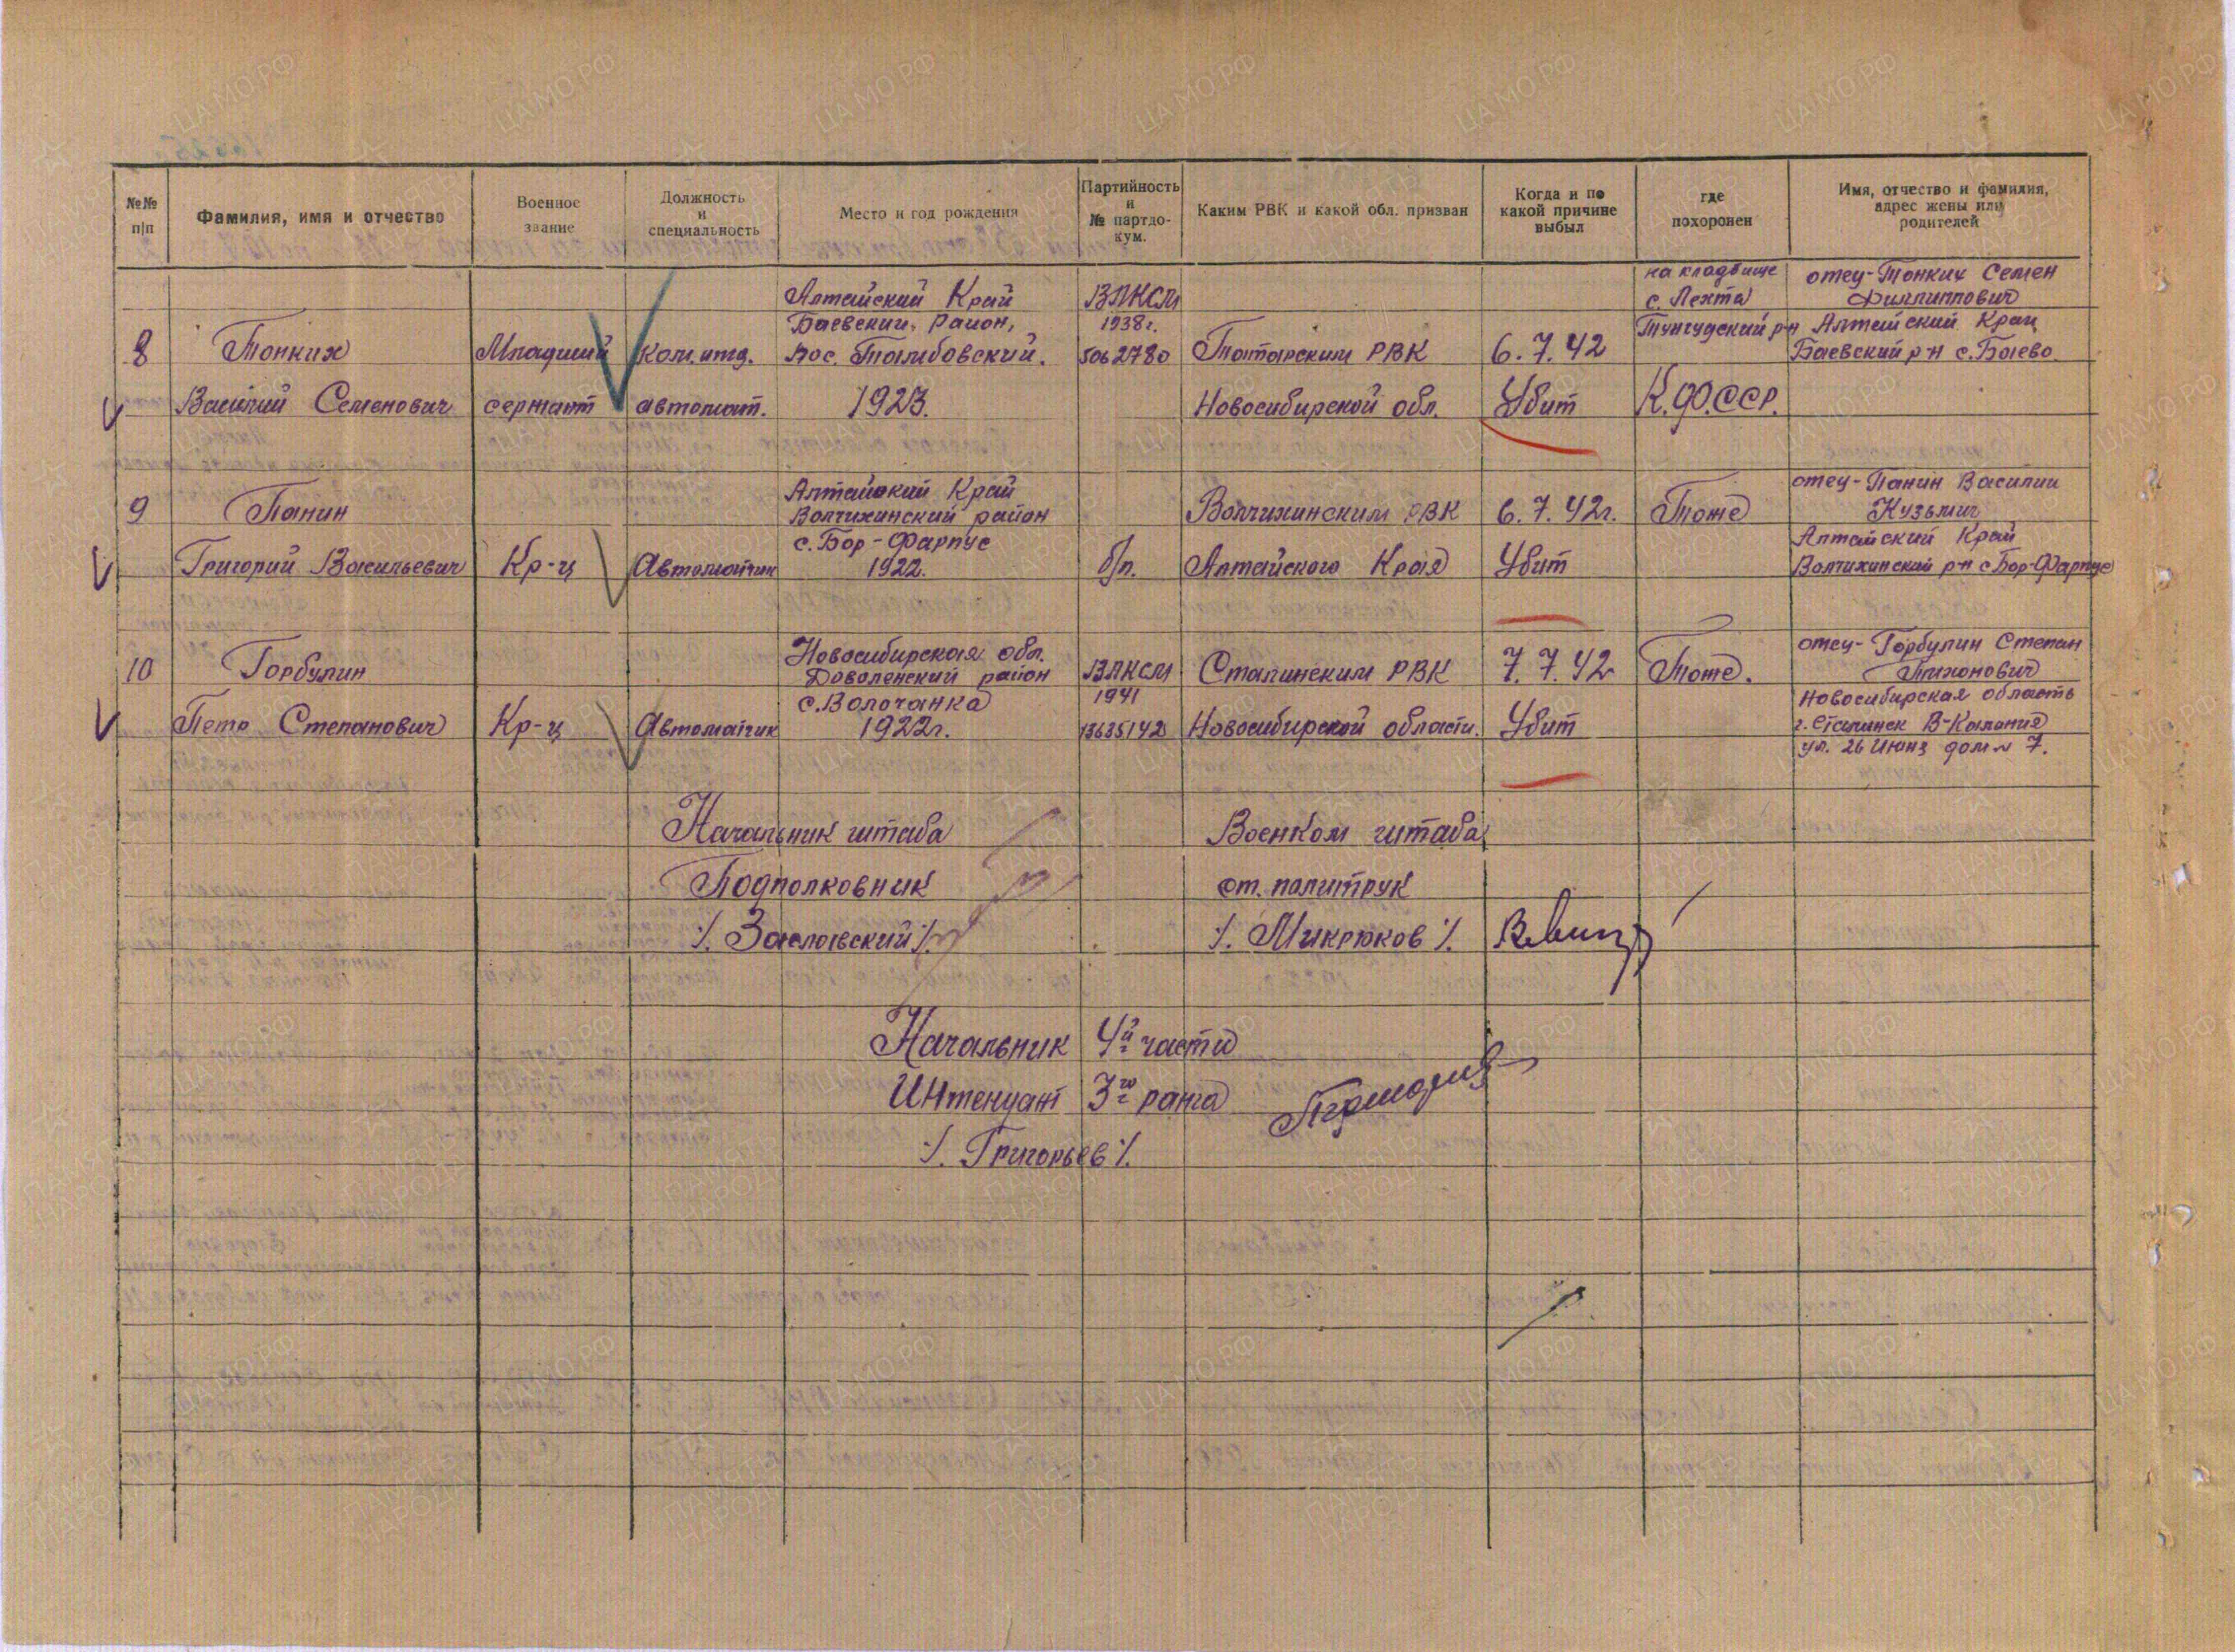 №№ п/п
Фамилия, имя и отчество
Военное звание
Должность и специальность
Место и год рождения
Партийность и № партдокум.
Каким РВК и какой обл. призван
Когда и по какой причине выбыл
где похоронен
Имя, отчество и фамилия, адрес жены или родителей
8
Тонких
Василий Семенович
Младший
сержант
Ком. отд.
автомат.
Алтайский Край
Баевский, район,
пос. Тамбовский.
1923.
ВЛКСМ
1938г.
5062780
Татарским РВК
Новосибирской обл.
6.7.42
Убит
на кладбище
с. Лехта
Тунгудский р-н
К.ФО.ССР.
отец-Тонких Семен
Филлиппович
Алтайский Край
Баевский р-н с.Баево.
9
Панин
Григорий Васильевич
Кр-ц
Автоматчик
Алтайский Край
Волчихинский район
с. Бор-Фарпус
1922.
б/п.
Волчихинским РВК
Алтайского Края
6.7.42г.
Убит
Тоже
отец-Панин Василии
Кузьмич
Алтайский Край
Волчихинский р-н с Бор-Фарпус
10
Горбулин
Петр Степанович
Кр-ц
Автоматчик
Новосибирская обл.
Доволенский район
с. Волочанка
1922г.
ВЛКСМ
1941
13635142
Сталинским РВК
Новосибирской области.
7.7.42
Убит
Тоже.
отец-Горбулин Степан
Новосибирская область
г. Сталинск В-Калания
ул. 26 Июня дом № 7.
Начальник штаба
Подполковник
/. Заславский /
Военком штаба
ст. политрук
/. Микрюков /.
Начальник 4й части
Интендант 3го ранга
/. Григорьев /.
ЦАМО РФ
ПАМЯТЬ НАРОДА